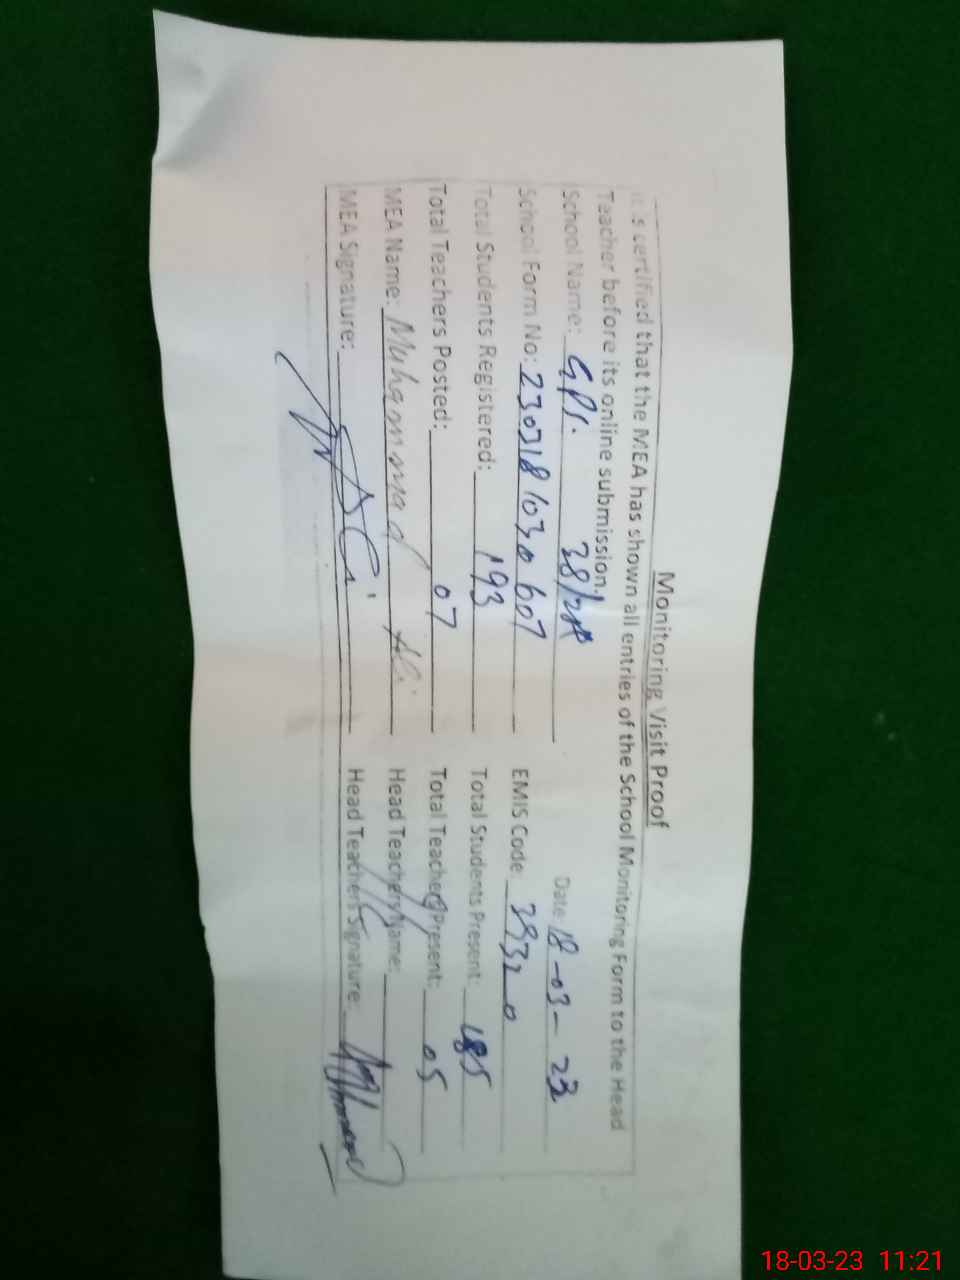 Monitoring Visit Proof
It is certified that the MEA has shown all entries of the School Monitoring Form to the Head
Teacher before its online submission.
School Name: GPS. 38/2R Date 18-03-23
School Form No: 230318 1030 607 EMIS Code:
Total Students Registered: 193 Total Students Present: 185
Total Teachers Posted: 07 Total Teachers Present: 05
MEA Name: Muhammad Ali Head Teachers Name:
MEA Signature: Head Teachers Signature:
18-03-23 11:21